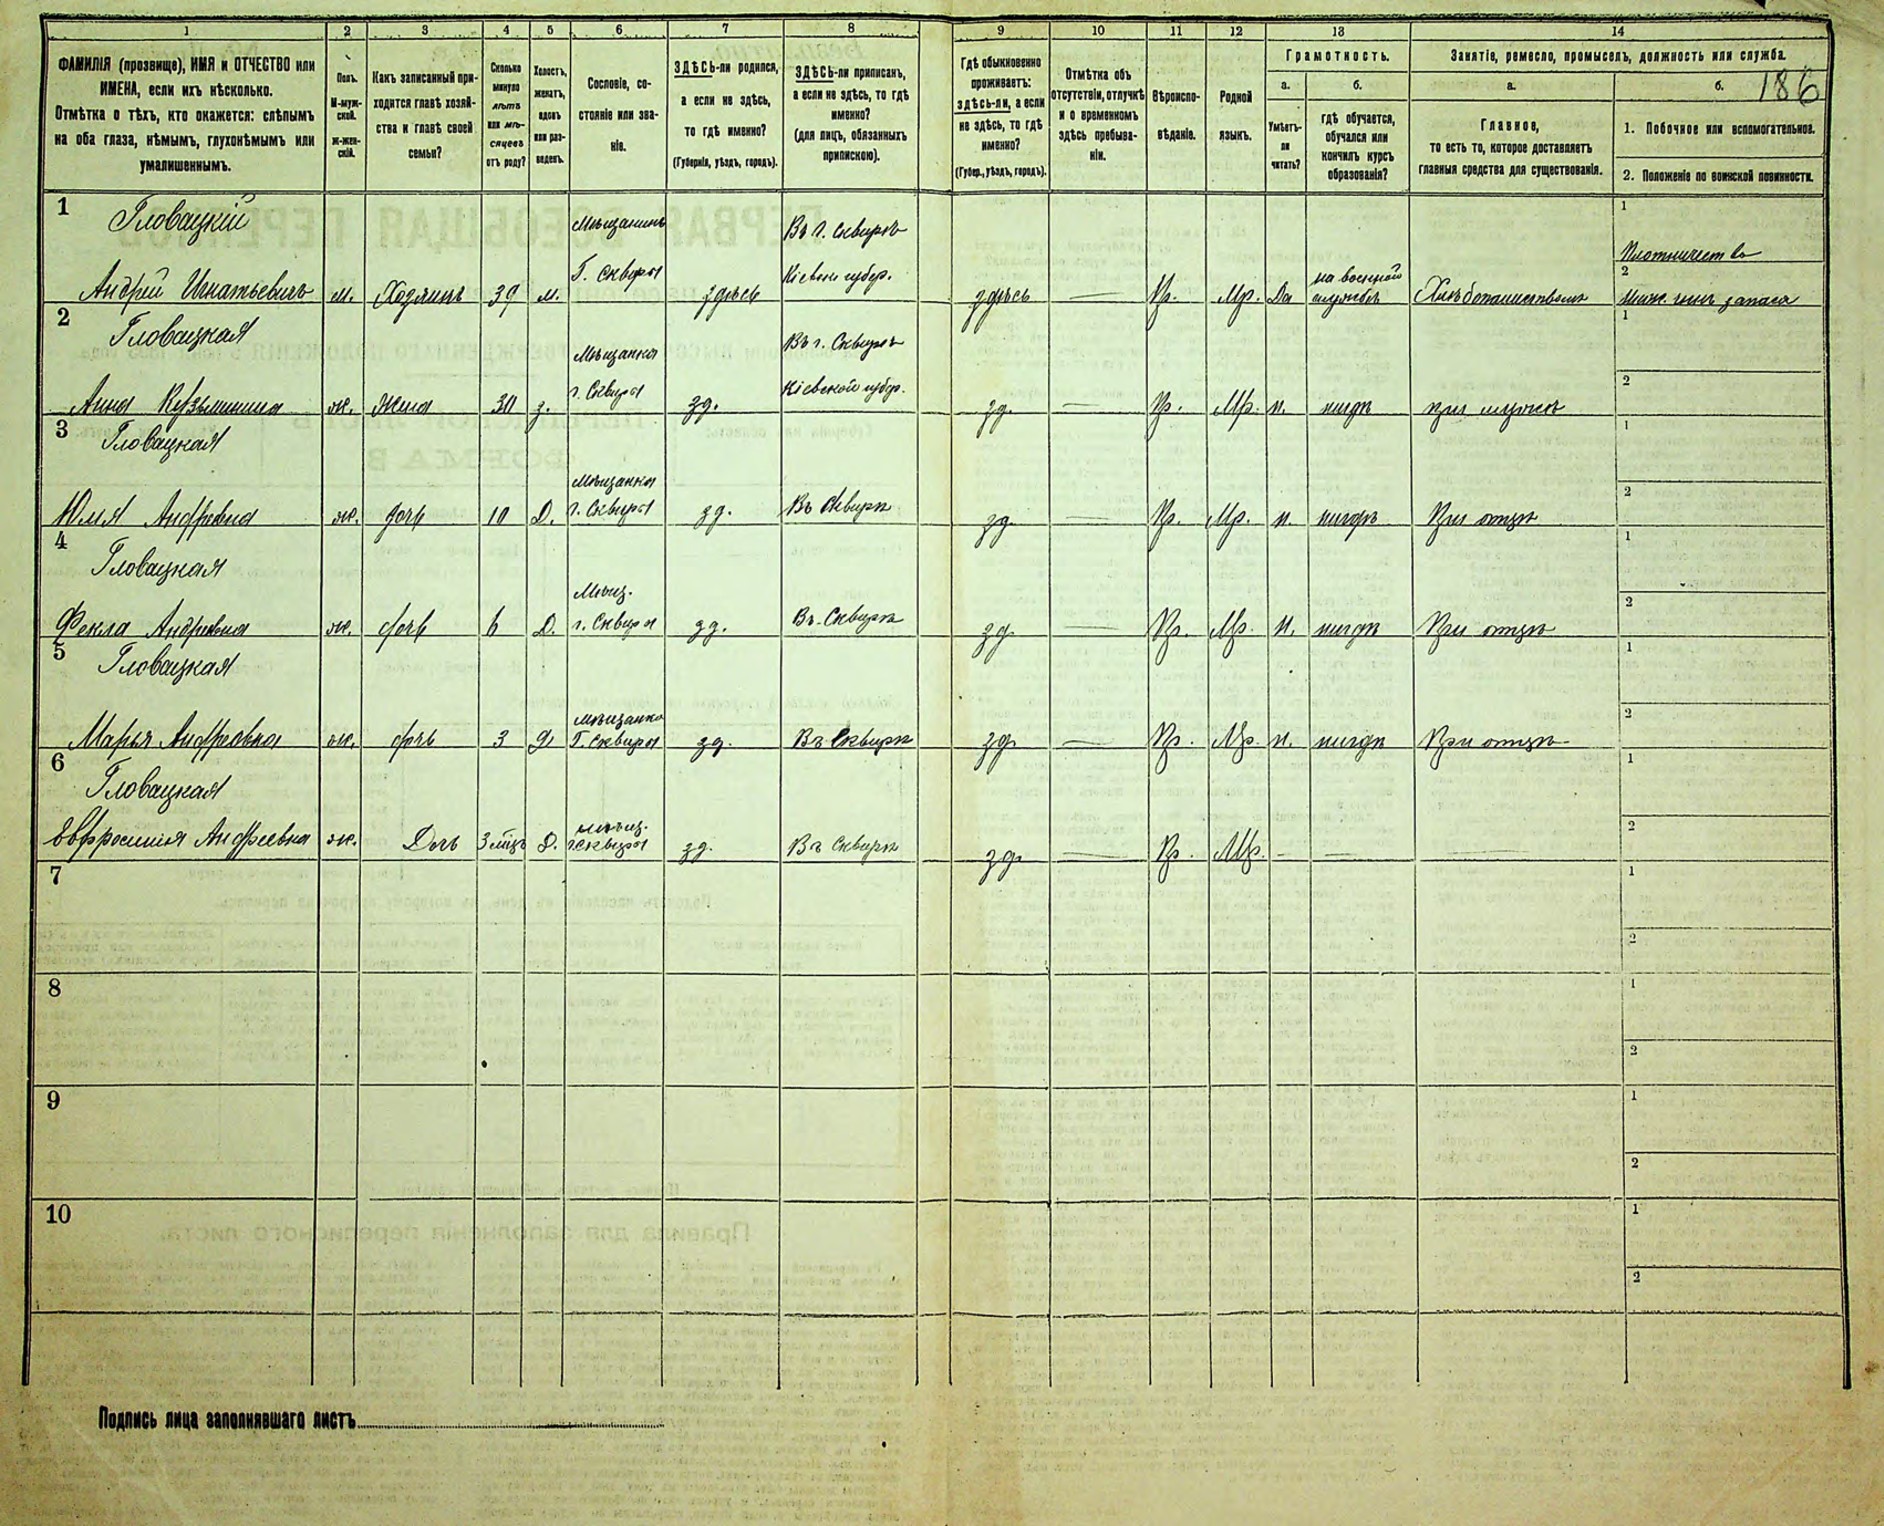 1 2 3 4 5 6 7 8 9 10 11 12 13 14
ФАМИЛІЯ (прозвище), ИМЯ и ОТЧЕСТВО или
ИМЕНА, если ихъ нѣсколько.
Отмѣтка о тѣхъ, кто окажется: слѣпымъ
на оба глаза, нѣмымъ, глухонѣмымъ или
умалишеннымъ.
Полъ.
М-муж-
ской.
Ж-жен-
скій.
Какъ записанный при-
ходится главѣ хозяй-
ства и главѣ своей
семьи?
Сколько
минуло
лѣтъ
или мѣ-
сяцевъ
отъ роду?
Холостъ,
женатъ,
вдовъ
или раз-
веденъ.
Сословіе, со-
стояніе или зва-
ніе.
ЗДѢСЬ-ли родился,
а если не здѣсь,
то гдѣ именно?
(Губернія, уѣздъ, городъ).
ЗДѢСЬ-ли приписанъ,
а если не здѣсь, то гдѣ
именно?
(для лицъ, обязанныхъ
припискою).
Гдѣ обыкновенно
проживаетъ:
здѣсь-ли, а если
не здѣсь, то гдѣ
именно?
(Губер., уѣздъ, городъ).
Отмѣтка объ
отсутствіи, отлучкѣ
и о временномъ
здѣсь пребыва-
ніи.
Вѣроиспо-
вѣданіе.
Родной
языкъ.
Грамотность.
а.
Умѣетъ-
ли
читать?
б.
гдѣ обучается,
обучался или
кончилъ курсъ
образованія?
Занятіе, ремесло, промыселъ, должность или служба.
а.
Главное,
то есть то, которое доставляетъ
главныя средства для существованія.
б.
186
1. Побочное или вспомогательное.
2. Положеніе по воинской повинности.
1 Гловацкій Мѣщанинъ Въ г. Сквирѣ 1
Плотничество
Г. Сквыры Кіевск губер. на военной 2
Андрій Игнатьевичъ м. Хозяинъ 39 м. здѣсь здѣсь — Пр. Мр. Да службѣ Хлѣбопашествомъ ниж. чинъ запаса
2 Гловацкая Мѣщанка Въ г. Сквирѣ 1
г. Сквыры Кіевской губер. 2
Анна Кузьминина ж. Жена 30 з. зд. зд. — Пр. Мр. н. нигдѣ при мужѣ
3 Гловацкая 1
Мѣщанка 2
Юлія Андреевна ж. дочь 10 Д. г. Сквыры зд. Въ Сквирѣ зд. — Пр. Мр. н. нигдѣ При отцѣ
4 Гловацкая 1
Мѣщ. 2
Фекла Андреевна ж. дочь 6 Д. г. Сквыры зд. Въ Сквирѣ зд. — Пр. Мр. н. нигдѣ При отцѣ
5 Гловацкая 1
Мѣщанка 2
Марья Андреовна ж. дочь 3 д. Г. Сквыры зд. Въ Сквирѣ зд. — Пр. Мр. н. нигдѣ При отцѣ
6 Гловацкая 1
мѣщ. 2
Еввфросинія Андреевна ж. Дочь 3 мѣц Д. г. Сквыры зд. Въ Сквирѣ зд. — Пр. Мр. — — —
7 1
2
8 1
2
9 1
2
10 1
2
Подпись лица заполнявшаго листъ